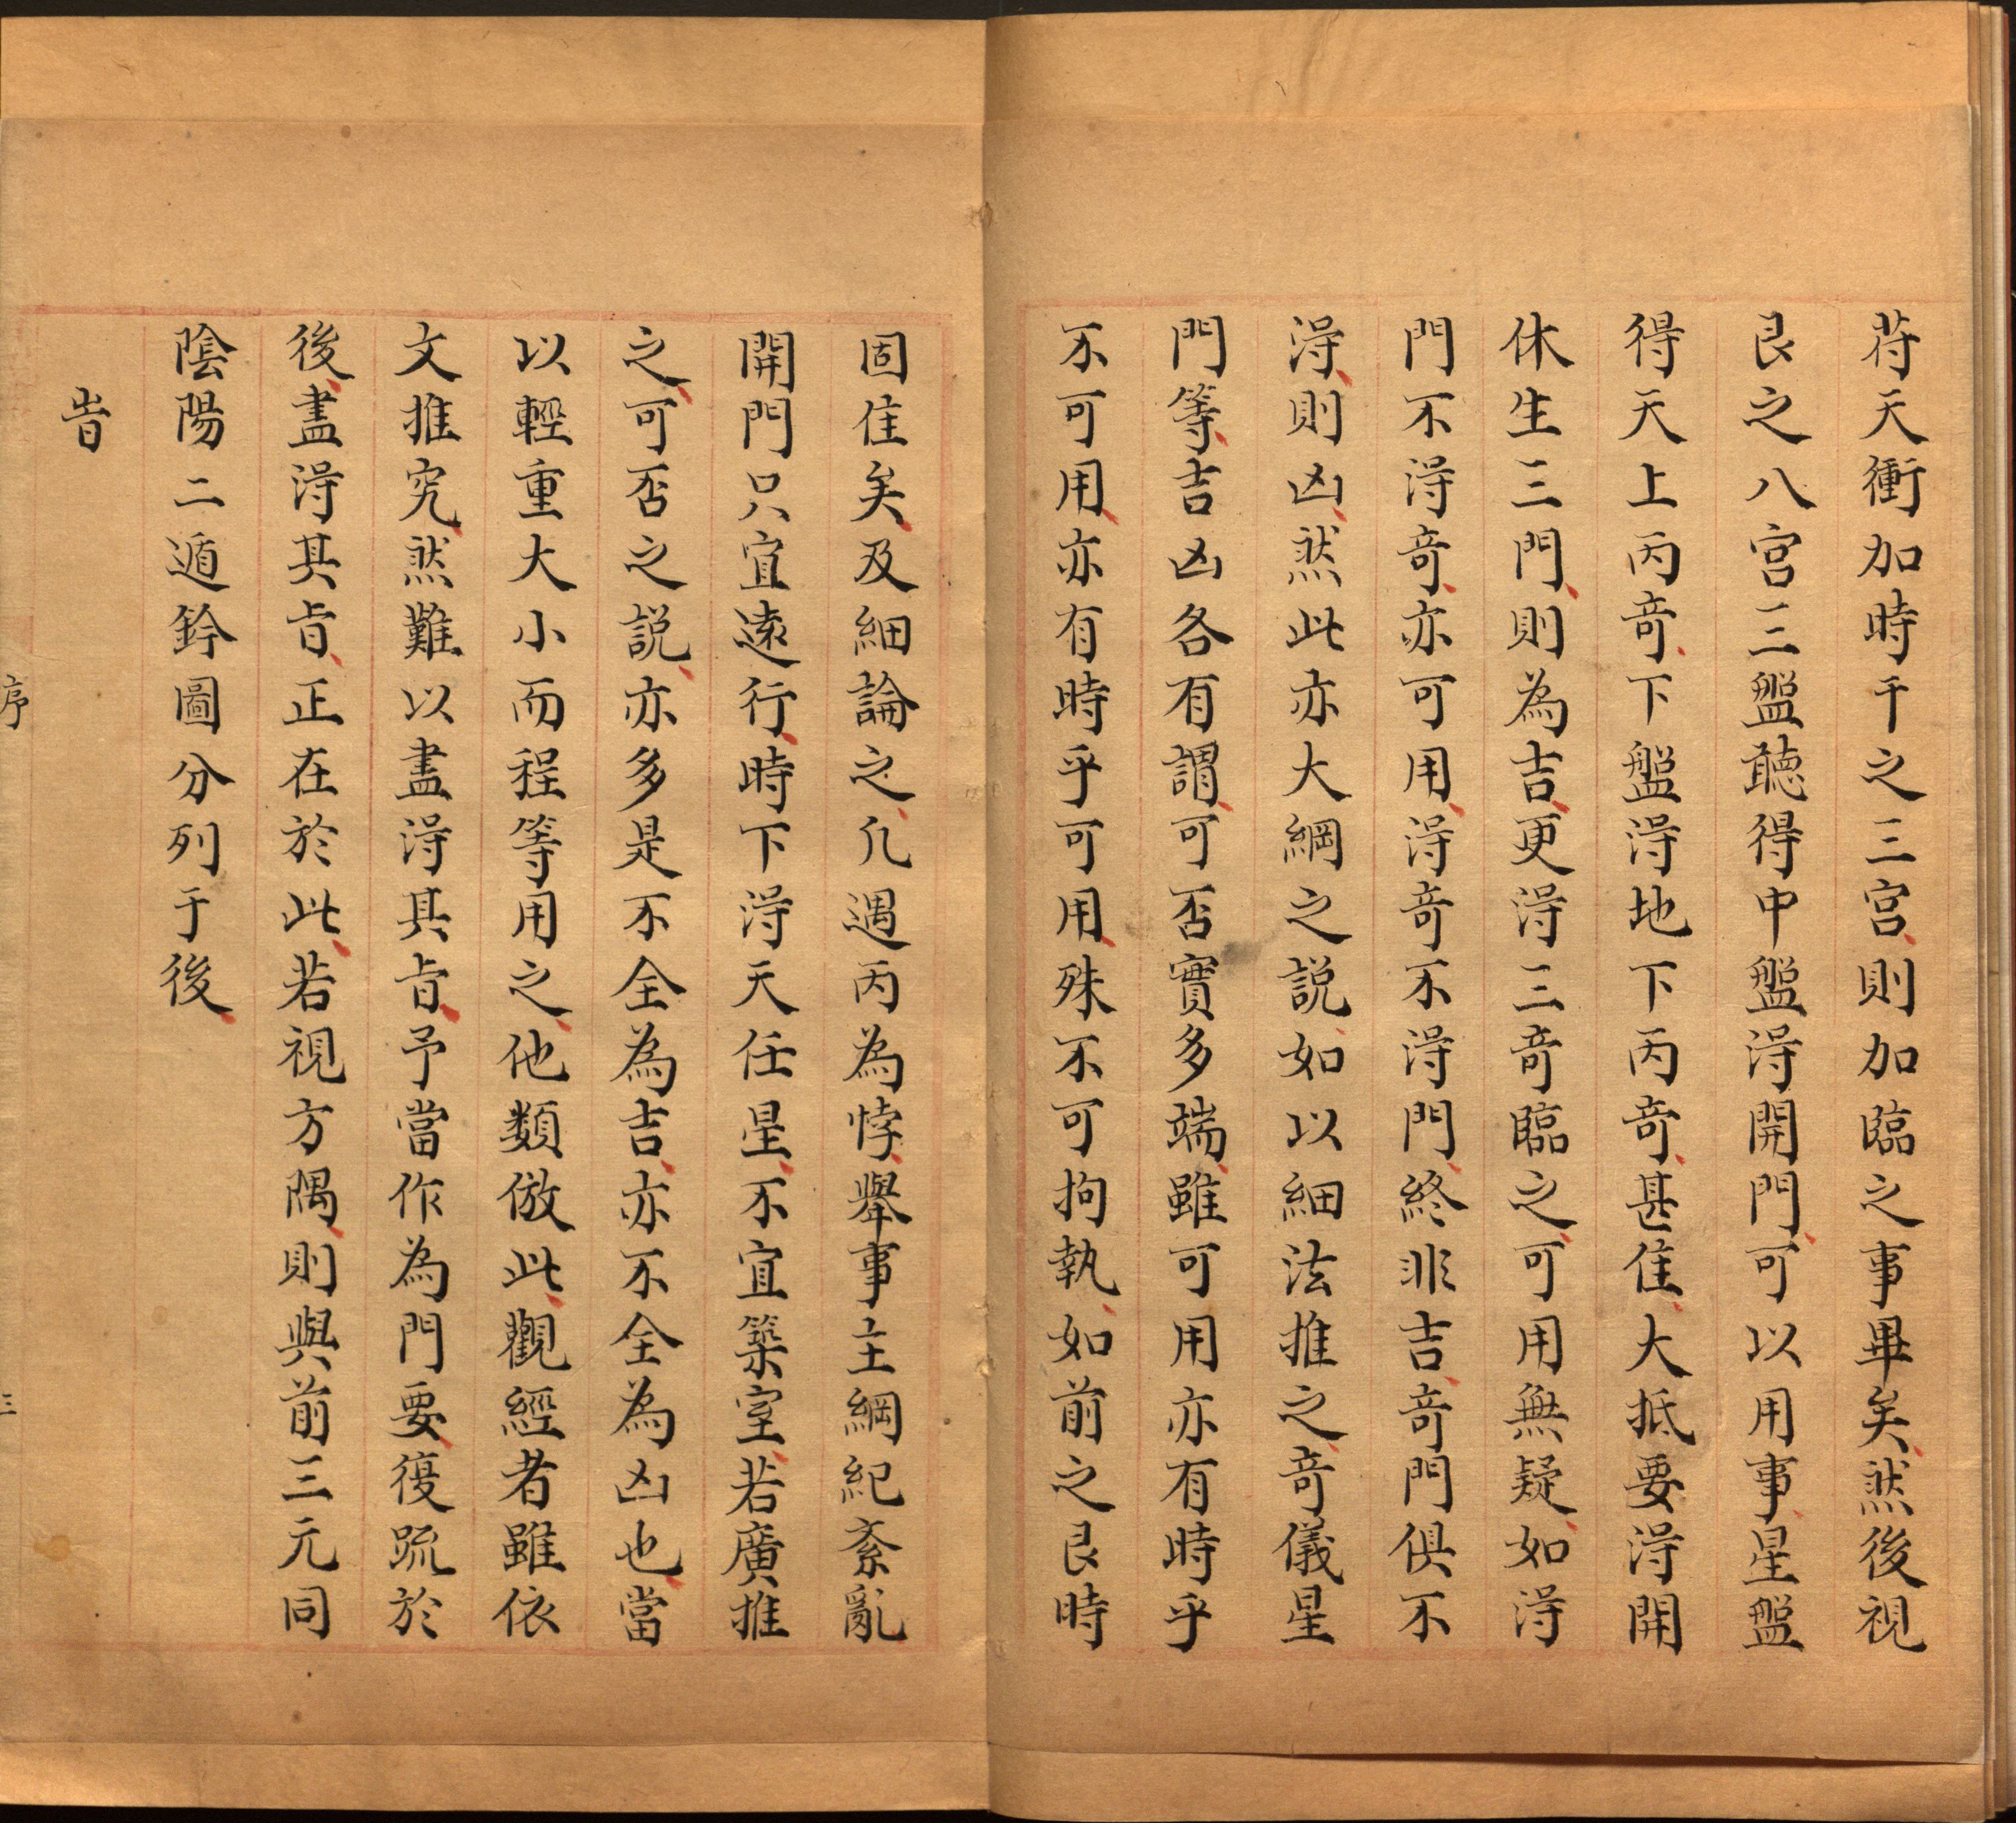 苻天衝加時干之三宮則加臨之事畢矣然後視
艮之八宮三盤聽得中盤淂開門可以用事星盤
得天上丙竒下盤淂地下丙竒甚佳大抵要淂開
休生三門則為吉更淂三竒臨之可用無疑如淂
門不淂竒亦可用淂竒不淂門終非吉竒門俱不
淂則凶然此亦大綱之説如以細法推之竒儀星
門等吉凶各有謂可否實多端雖可用亦有時乎
不可用亦有時乎可用殊不可拘執如前之艮時
固佳矣及細論之凢遇丙為悖舉事主綱紀紊亂
開門只宜遠行時下淂天任星不宜築室若廣推
之可否之説亦多是不全為吉亦不全為凶也當
以輕重大小而程等用之他類倣此觀經者雖依
文推究然難以盡淂其㫖予當作為門要復䟽於
後盡淂其㫖正在於此若視方隅則與前三元同
陰陽二遁鈐圖分列于後
旹
序
三